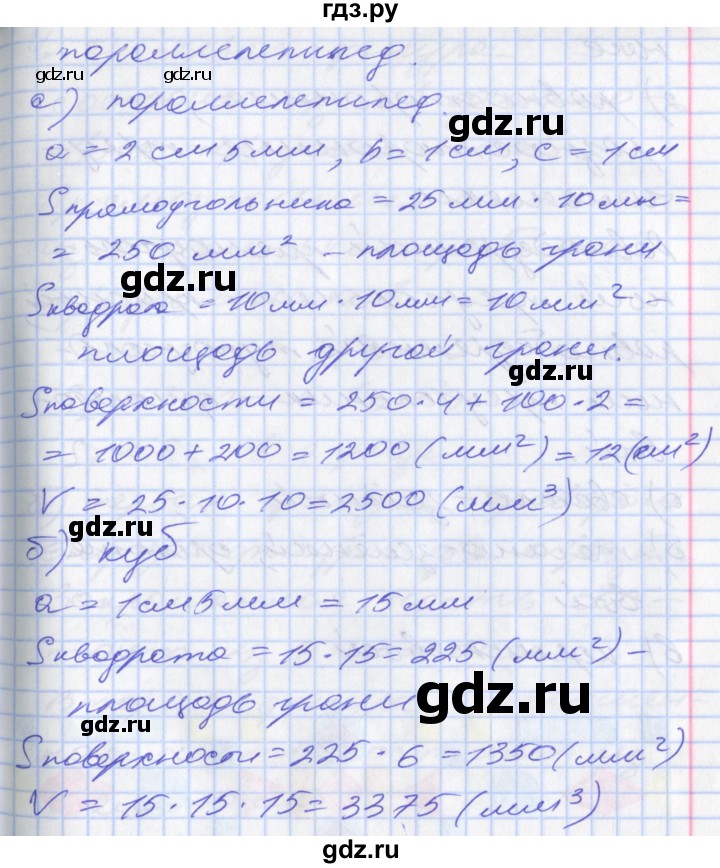 гдз.ру
параллелепипед.
gdz.ru gdz.ru
а) параллелепипед.
gdz.ru
a = 2 см 5 мм, b = 1 см, c = 1 см
Sпрямоугольника = 25 мм · 10 мм =
= 250 мм² – площадь грани
gdz.ru
Sквадрата = 10 мм · 10 мм = 10 мм² –
площадь другой грани.
gdz.ru
Sповерхности = 250 · 4 + 100 · 2 =
= 1000 + 200 = 1200 (мм²) = 12 (см²)
V = 25 · 10 · 10 = 2500 (мм³)
gdz.ru
б) куб
a = 1 см 5 мм = 15 мм
gdz.ru
Sквадрата = 15 · 15 = 225 (мм²) –
площадь грани
gdz.ru
gdz.ru
Sповерхности = 225 · 6 = 1350 (мм²)
V = 15 · 15 · 15 = 3375 (мм³)
gdz.ru